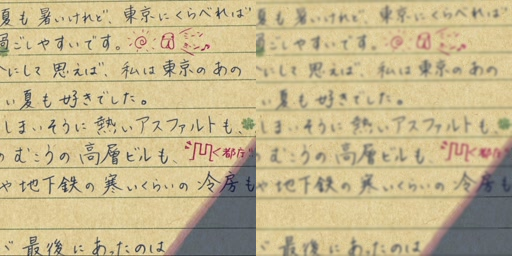 夏も暑いけれど、東京にくらべれば
過ごしやすいです。
にして思えば、私は東京のあの
い夏も好きでした。
しまいそうに熱いアスファルトも、
むこうの高層ビルも、都庁
や地下鉄の寒いくらいの冷房も
最後にあったのは
夏も暑いけれど、東京にくらべれば
ごしやすいです。
にして思えば、私は東京のあの
い夏も好きでした。
しまいそうに熱いアスファルトも、
むこうの高層ビルも、都庁
や地下鉄の寒いくらいの冷房も
最後にあったのは